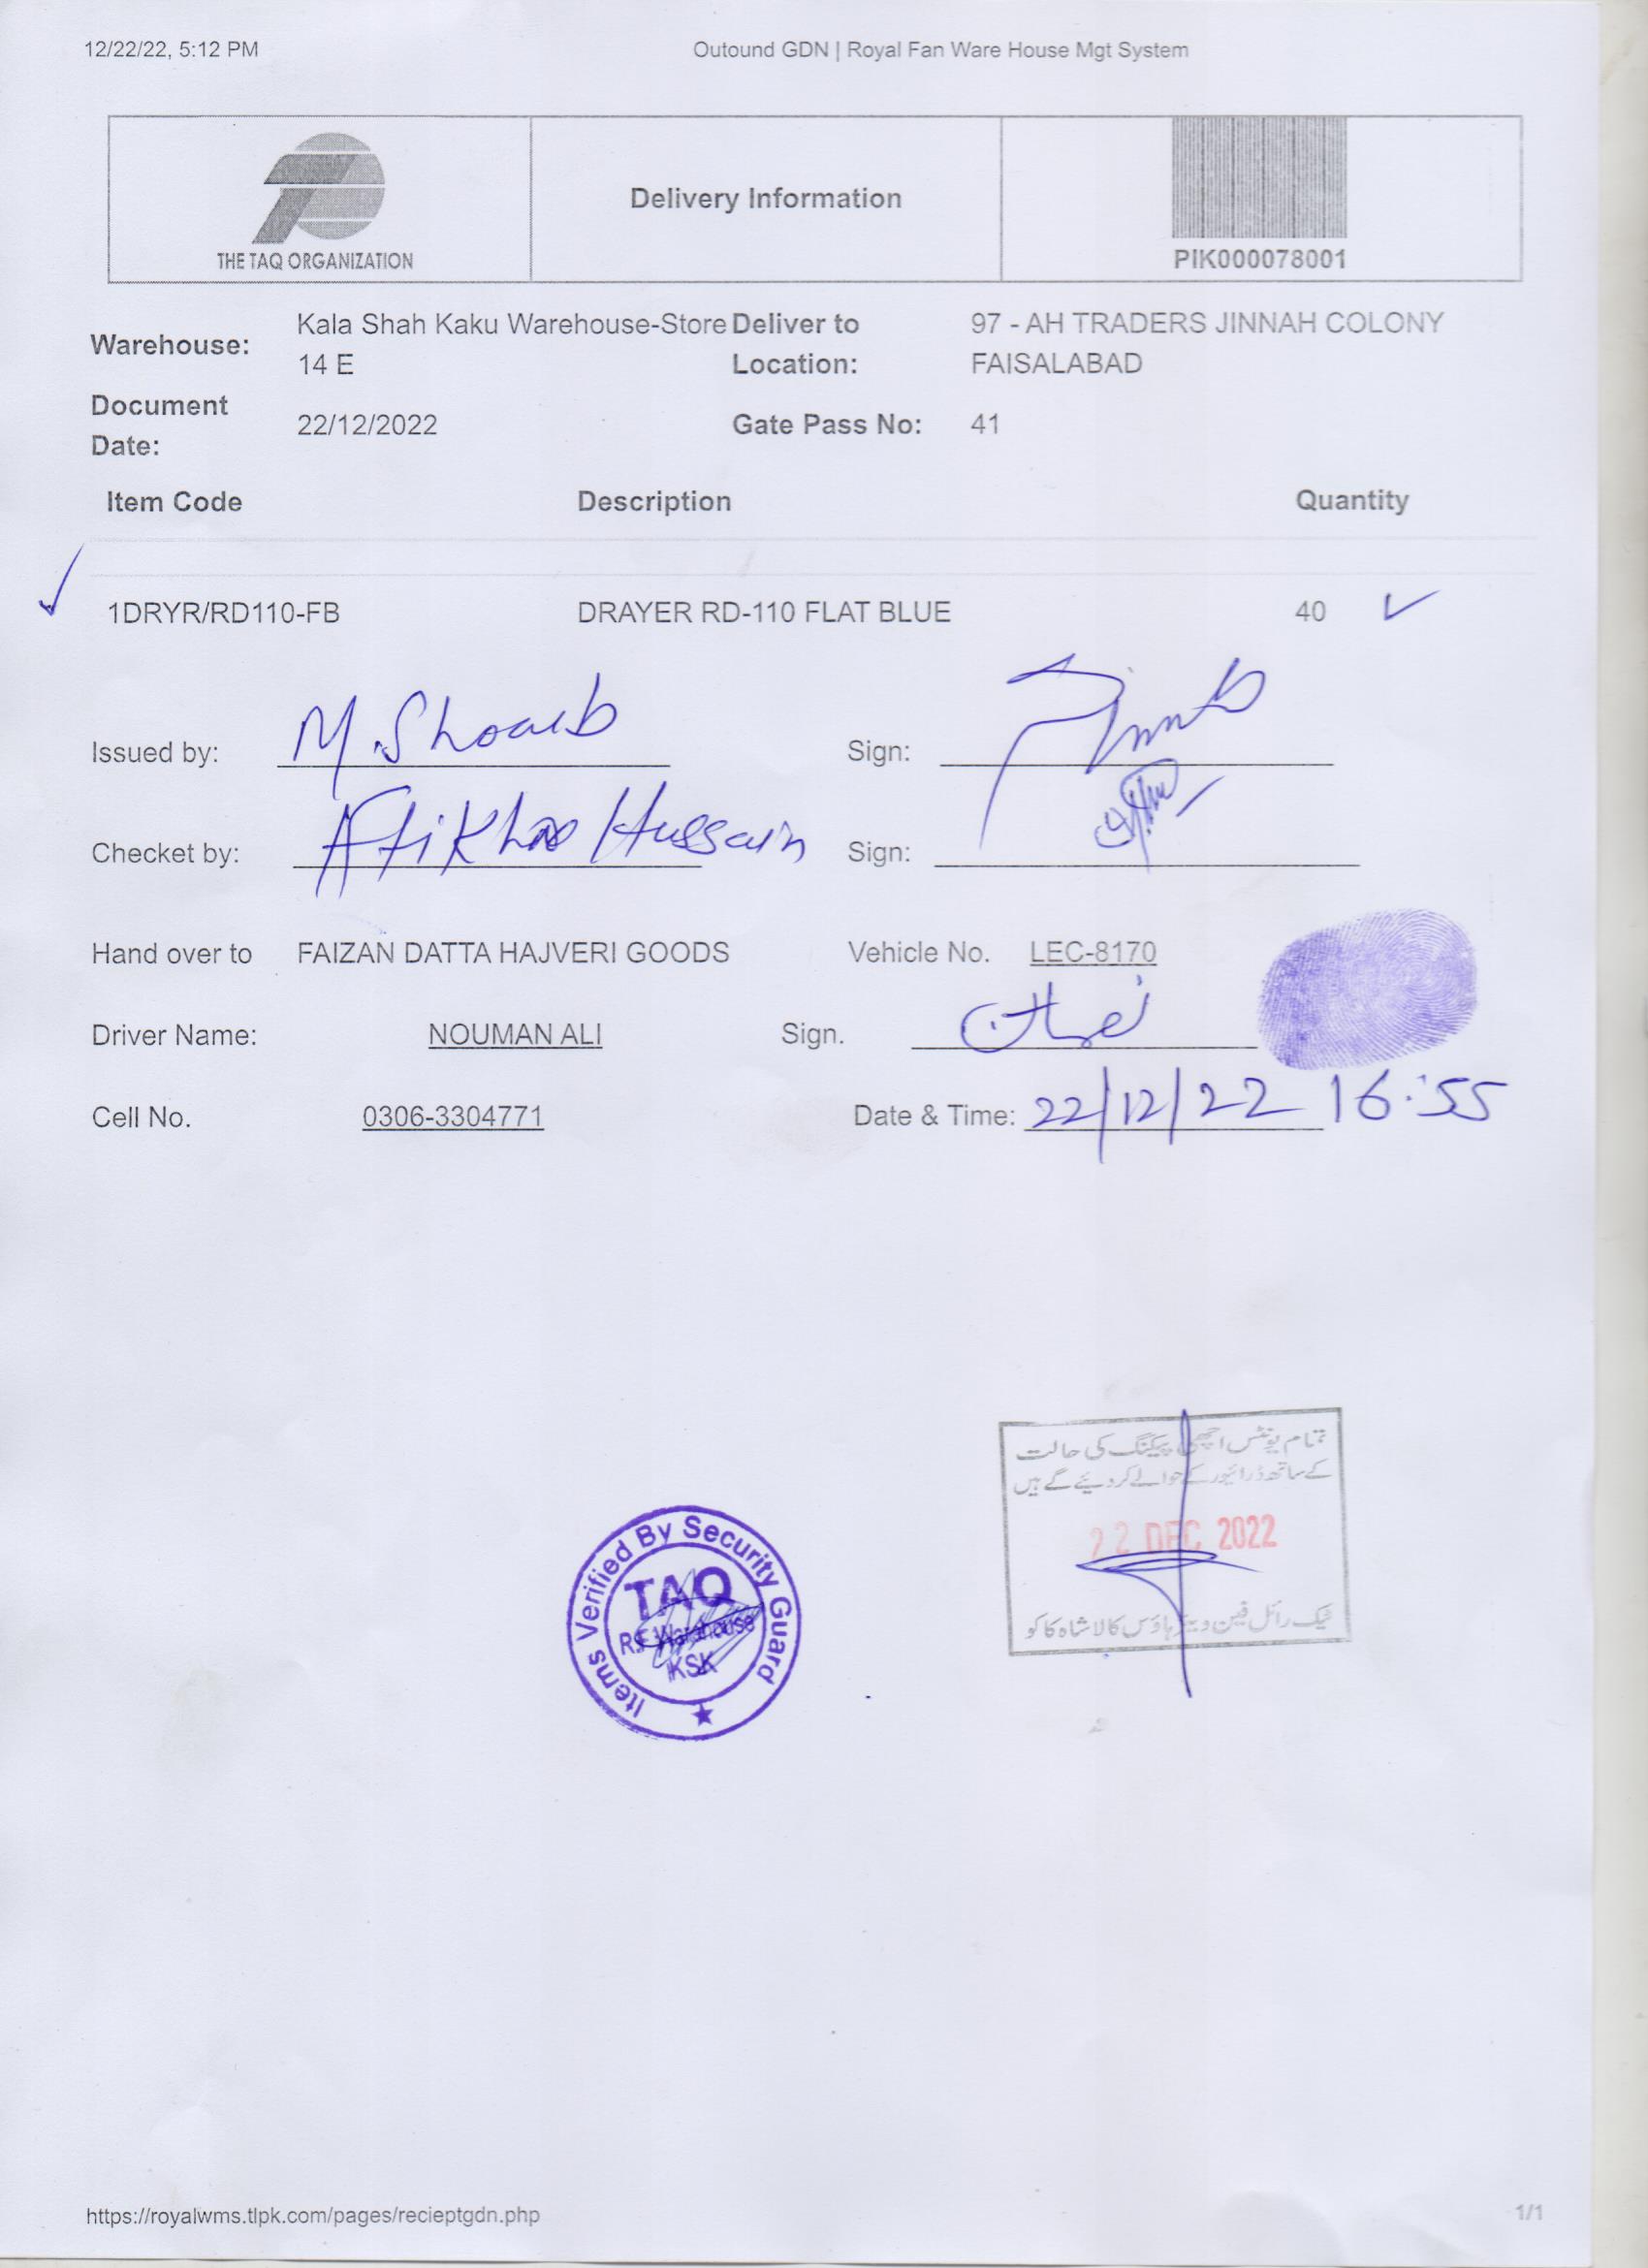 12/22/22, 5:12 PM Outound GDN | Royal Fan Ware House Mgt System
THE TAQ ORGANIZATION
Delivery Information
PIK000078001
Warehouse: Kala Shah Kaku Warehouse-Store 14 E
Deliver to Location: 97 - AH TRADERS JINNAH COLONY FAISALABAD
Document Date: 22/12/2022
Gate Pass No: 41
Item Code Description Quantity
1DRYR/RD110-FB DRAYER RD-110 FLAT BLUE 40
Issued by: M. Shoaib Sign:
Checket by: Hussain Sign:
Hand over to FAIZAN DATTA HAJVERI GOODS Vehicle No. LEC-8170
Driver Name: NOUMAN ALI Sign. نعمان
Cell No. 0306-3304771 Date & Time: 22/12/22 16:55
تمام یونٹس اچھی پیکنگ کی حالت
کے ساتھ ڈرائیور کے حوالے کر دیئے گے ہیں
22 DEC 2022
ٹیک رائل فین ویئر ہاؤس کالا شاہ کاکو
Items Verified By Security Guard
TAQ
R.F Warehouse
KSK
https://royalwms.tlpk.com/pages/recieptgdn.php 1/1